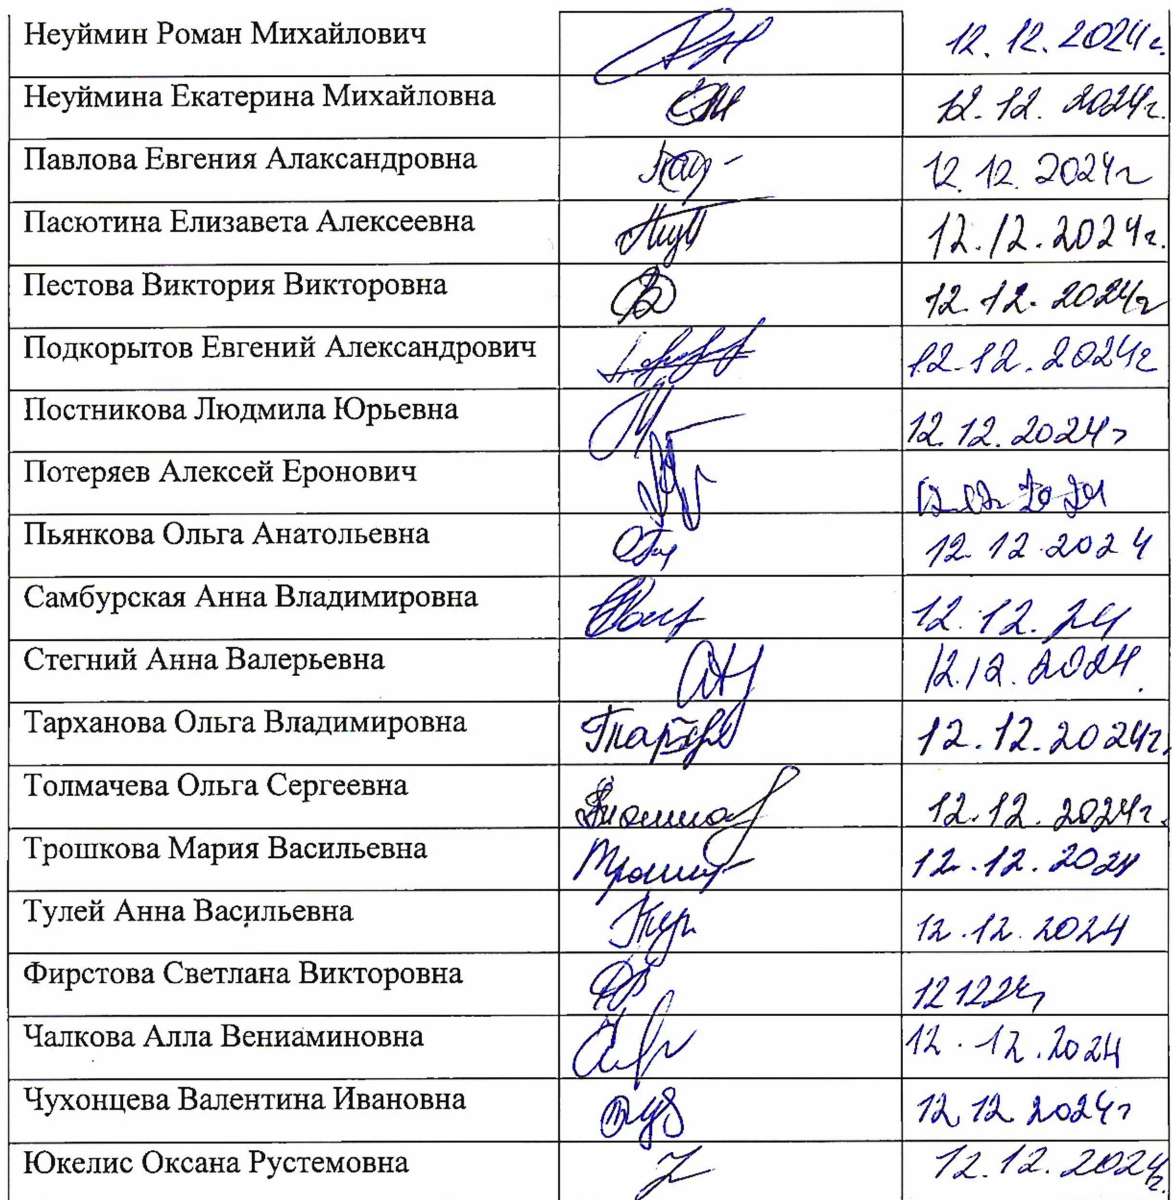 Неуймин Роман Михайлович 12.12.2024г.
Неуймина Екатерина Михайловна 12.12.2024г.
Павлова Евгения Алаксандровна 12.12.2024г
Пасютина Елизавета Алексеевна 12.12.2024г.
Пестова Виктория Викторовна 12.12.2024г
Подкорытов Евгений Александрович 12.12.2024г
Постникова Людмила Юрьевна 12.12.2024г
Потеряев Алексей Еронович 12.12.2024
Пьянкова Ольга Анатольевна 12.12.2024
Самбурская Анна Владимировна 12.12.24
Стегний Анна Валерьевна 12.12.2024.
Тарханова Ольга Владимировна 12.12.2024г.
Толмачева Ольга Сергеевна 12.12.2024г.
Трошкова Мария Васильевна 12.12.2024
Тулей Анна Васильевна 12.12.2024
Фирстова Светлана Викторовна 121224г
Чалкова Алла Вениаминовна 12.12.2024
Чухонцева Валентина Ивановна 12.12 2024г
Юкелис Оксана Рустемовна 12.12.2024г.